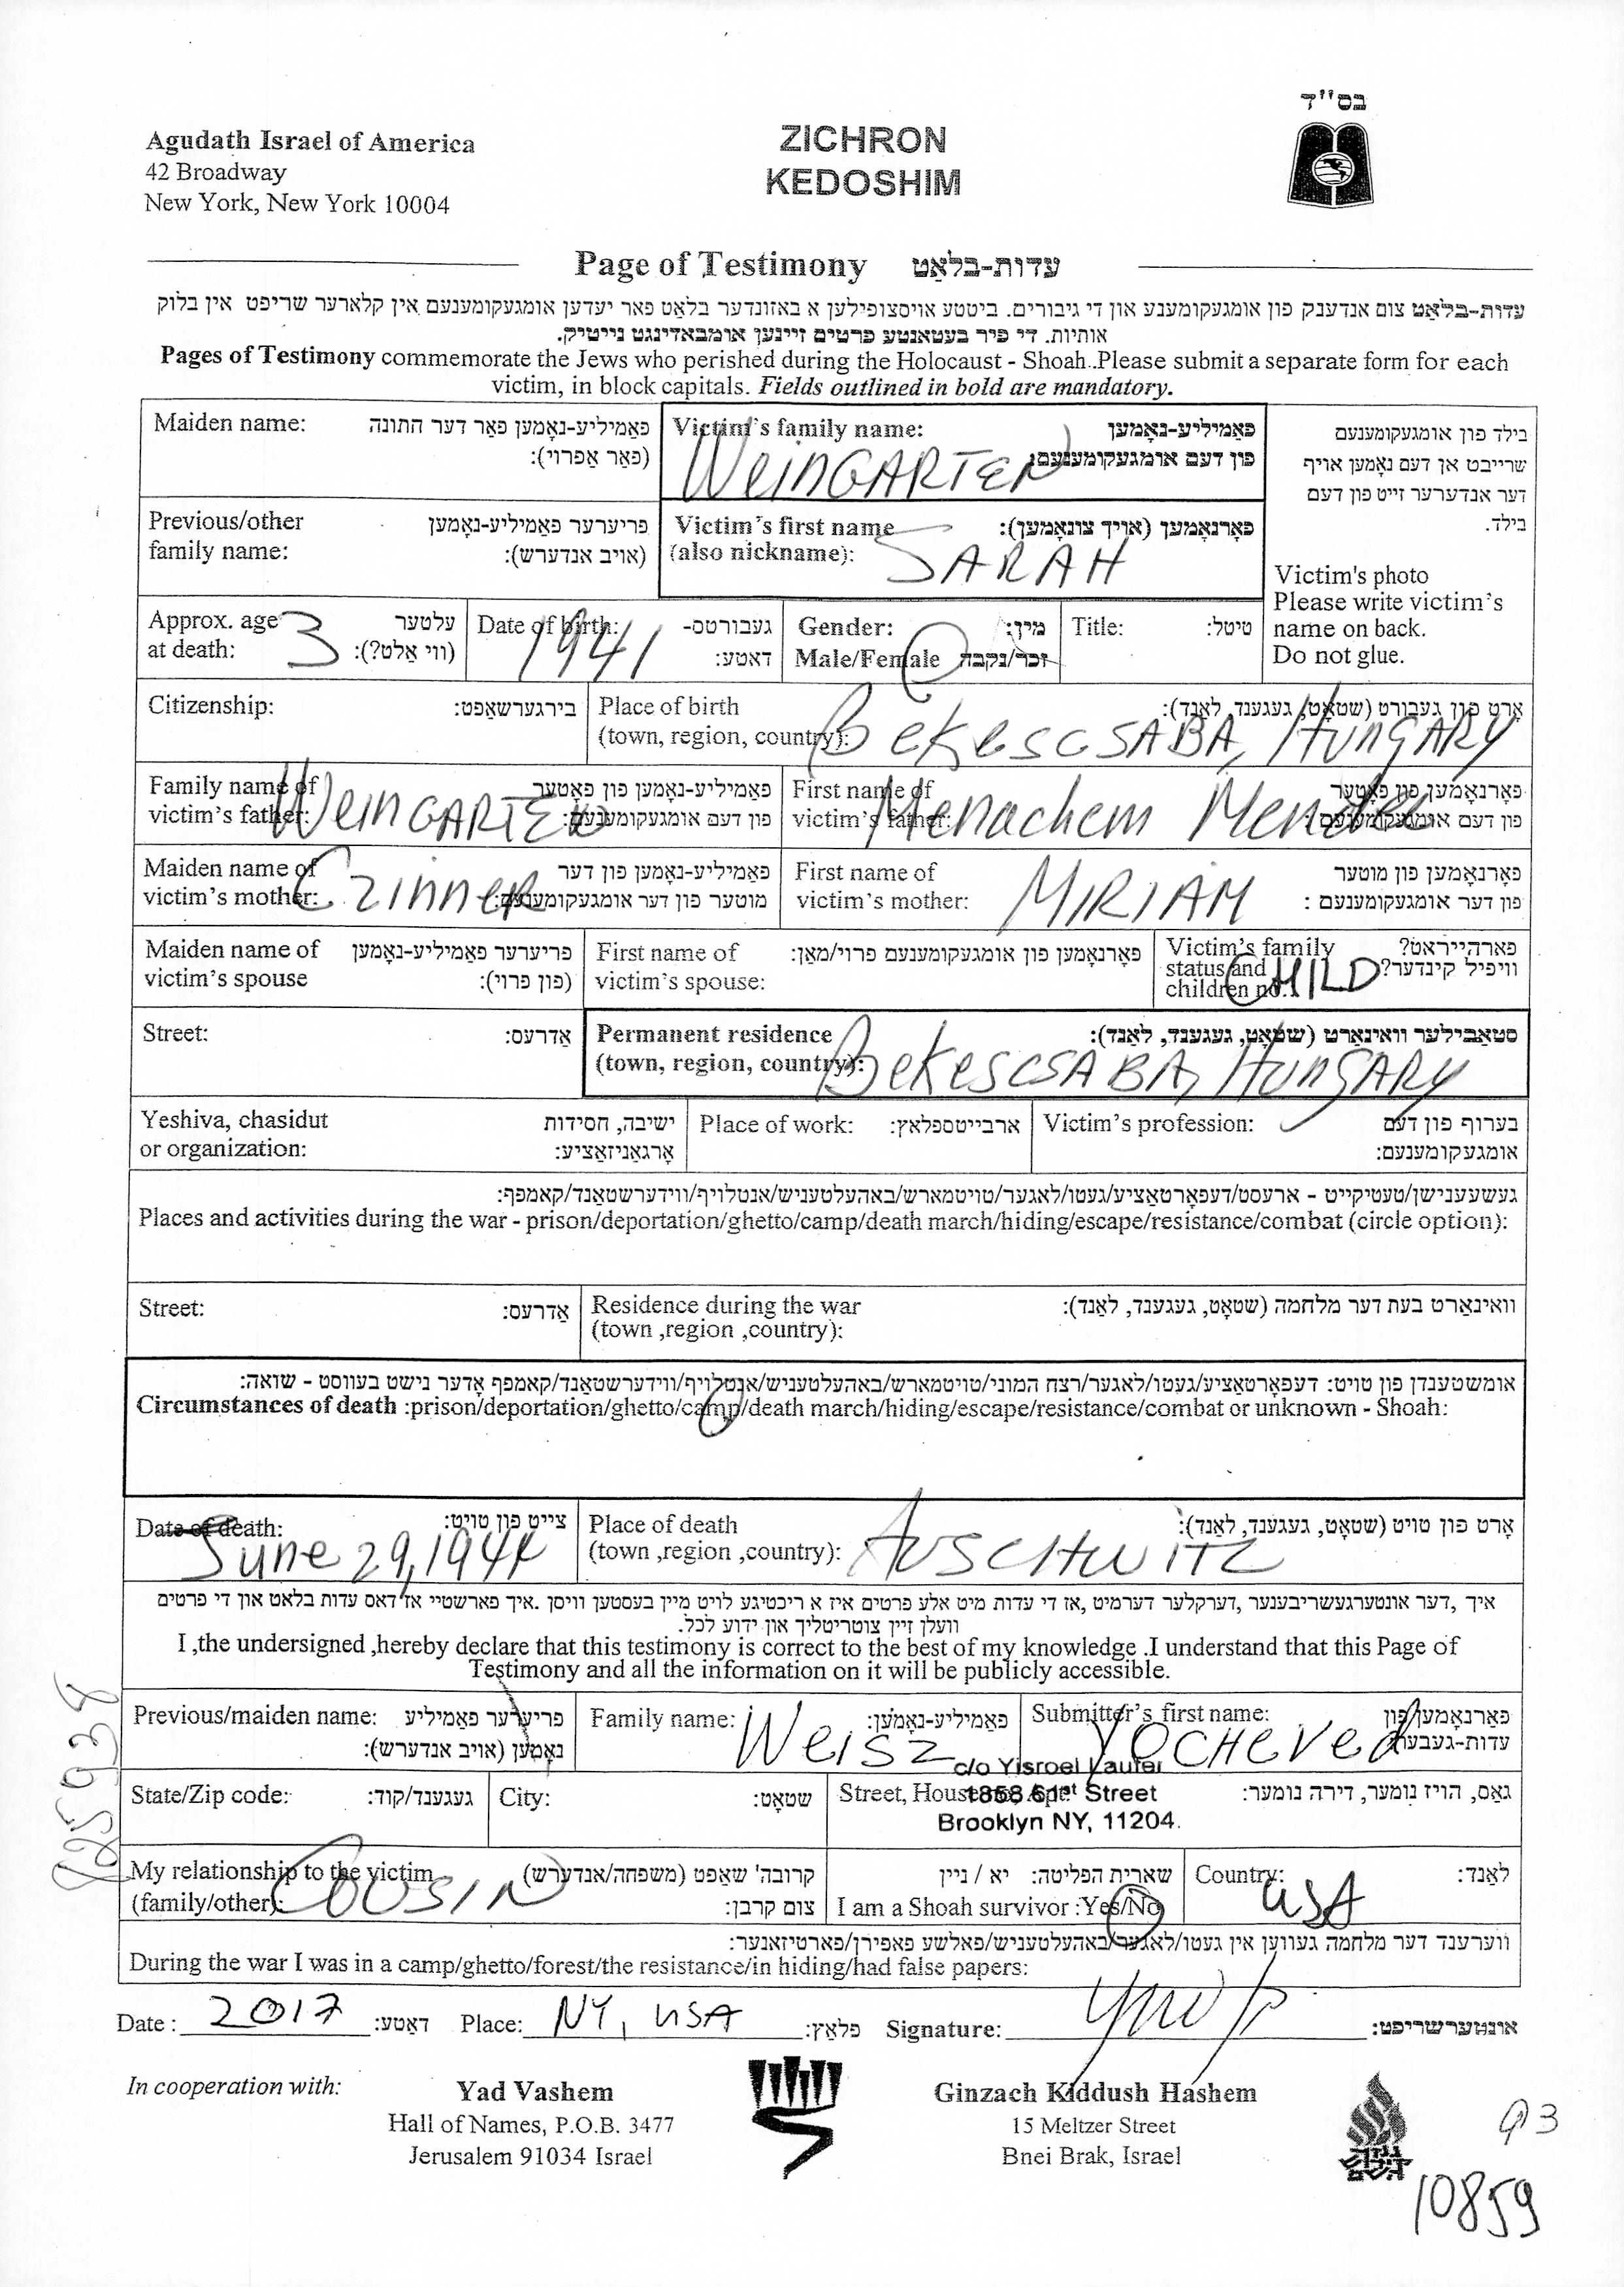 בס"ד
Agudath Israel of America
42 Broadway
New York, New York 10004
ZICHRON
KEDOSHIM
Page of Testimony עדות-בלאַט
עדות-בלאַט צום אנדענק פון אומגעקומענע און די גיבורים. ביטטע אויסצופילען א באזונדער בלאט פאר יעדען אומגעקומענעם אין קלארער שריפט אין בלוק
אותיות. די פיר בעטאנטע פרטים זיינען אומבאדינגט נייטיק.
Pages of Testimony commemorate the Jews who perished during the Holocaust - Shoah..Please submit a separate form for each
victim, in block capitals. Fields outlined in bold are mandatory.
Maiden name: פאַמיליע-נאָמען פאַר דער חתונה
(פאַר אַפרוי):
Victim's family name: פאַמיליע-נאָמען
פון דעם אומגעקומענעם:
WEINGARTEN
בילד פון אומגעקומענעם
שרייבט אן דעם נאָמען אויף
דער אנדערער זייט פון דעם
בילד.
Victim's photo
Please write victim's
name on back.
Do not glue.
Previous/other פריערער פאַמיליע-נאָמען
family name: (אויב אנדערש):
Victim's first name פאָרנאָמען (אויך צונאָמען):
(also nickname): SARAH
Approx. age עלטער
at death: (ווי אַלט?):
3
Date of birth: געבורטס-
דאַטע:
1941
Gender: מין:
Male/Female זכר/נקבה
Title: טיטל:
Citizenship: בירגערשאַפט:
Place of birth אָרט פון געבורט (שטאָט, געגענד, לאַנד):
(town, region, country): BEKESCSABA, HUNGARY
Family name of פאַמיליע-נאָמען פון פאָטער
victim's father: פון דעם אומגעקומענעם:
WEINGARTEN
First name of פאָרנאָמען פון פאָטער
victim's father: פון דעם אומגעקומענעם:
Menachem Mendel
Maiden name of פאַמיליע-נאָמען פון דער
victim's mother: מוטער פון דער אומגעקומענעם:
CZINNER
First name of פאָרנאָמען פון מוטער
victim's mother: פון דער אומגעקומענעם :
MIRIAM
Maiden name of פריערער פאַמיליע-נאָמען
victim's spouse (פון פרוי):
First name of פאָרנאָמען פון אומגעקומענעם פרוי/מאַן:
victim's spouse:
Victim's family פארהייראט?
status and וויפיל קינדער?
children no.:
CHILD
Street: אַדרעס:
Permanent residence סטאַבילער וואוינאָרט (שטאָט, געגענד, לאַנד):
(town, region, country): BEKESCSABA, HUNGARY
Yeshiva, chasidut ישיבה, חסידות
or organization: אָרגאַניזאַציע:
Place of work: ארבייטספלאץ:
Victim's profession: בערוף פון דעם
אומגעקומענעם:
געשעענישן/טעטיקייט - ארעסט/דעפאָרטאַציע/געטו/לאגער/טויטמארש/באהעלטעניש/אנטלויף/ווידערשטאַנד/קאמפף:
Places and activities during the war - prison/deportation/ghetto/camp/death march/hiding/escape/resistance/combat (circle option):
Street: אַדרעס:
Residence during the war וואוינאָרט בעת דער מלחמה (שטאָט, געגענד, לאַנד):
(town ,region ,country):
אומשטענדן פון טויט: דעפאָרטאַציע/געטו/לאגער/רצח המוני/טויטמארש/באהעלטעניש/אנטלויף/ווידערשטאַנד/קאמפף אָדער נישט בעוווסט - שואה:
Circumstances of death :prison/deportation/ghetto/camp/death march/hiding/escape/resistance/combat or unknown - Shoah:
Date of death: צייט פון טויט:
June 29, 1944
Place of death אָרט פון טויט (שטאָט, געגענד, לאַנד):
(town ,region ,country): AUSCHWITZ
איך ,דער אונטערגעשריבענער ,דערקלער דערמיט ,אז די עדות מיט אלע פרטים איז א ריכטיגע לויט מיין בעסטען וויסן .איך פארשטיי אז דאס עדות בלאט און די פרטים
וועלן זיין צוטריטליך און ידוע לכל.
I ,the undersigned ,hereby declare that this testimony is correct to the best of my knowledge .I understand that this Page of
Testimony and all the information on it will be publicly accessible.
Previous/maiden name: פריערער פאַמיליע
נאָמען (אויב אנדערש):
Family name: פאַמיליע-נאָמען:
WEISZ
Submitter's first name: פאַרנאָמען פון
עדות-געבער:
YOCHEVED
State/Zip code: געגענד/קוד:
City: שטאָט:
Street, House גאַס, הויז נומער, דירה נומער:
c/o Yisroel Laufer
1858 61st Street
Brooklyn NY, 11204.
My relationship to the victim קרובה' שאַפט (משפחה/אנדערש)
(family/other): צום קרבן:
COUSIN
שארית הפליטה: יא / ניין
I am a Shoah survivor :Yes/No
Country: לאַנד:
USA
ווערענד דער מלחמה געווען אין געטו/לאגער/באהעלטעניש/פאלשע פאפירן/פארטיזאנער:
During the war I was in a camp/ghetto/forest/the resistance/in hiding/had false papers:
Date : 2017 דאַטע: Place: NY, USA פלאַץ: Signature: אונטערשריפט:
In cooperation with:
Yad Vashem
Hall of Names, P.O.B. 3477
Jerusalem 91034 Israel
Ginzach Kiddush Hashem
15 Meltzer Street
Bnei Brak, Israel
93
10859